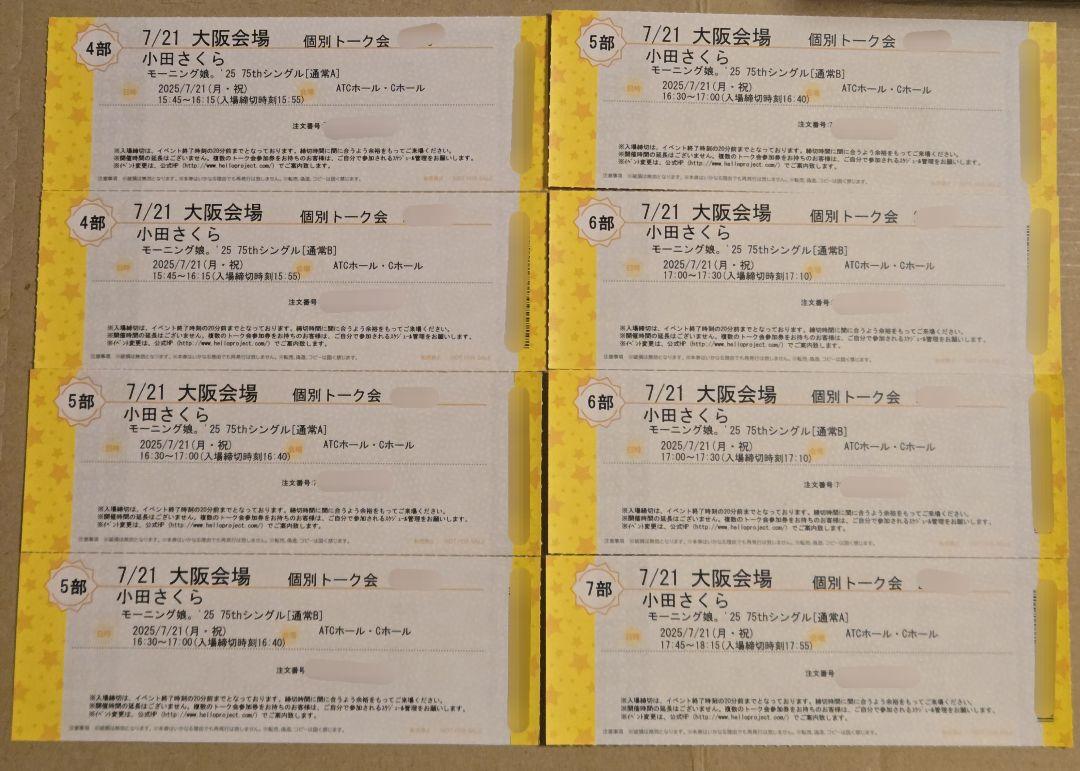 4部
7/21 大阪会場 個別トーク会
小田さくら
モーニング娘。'25 75thシングル[通常A]
日時 2025/7/21(月・祝) 会場 ATCホール・Cホール
15:45～16:15(入場締切時刻15:55)
注文番号
※入場締切は、イベント終了時刻の20分前までとなっております。締切時間に間に合うよう余裕をもってご来場ください。
※開催時間の延長はございません。複数のトーク会参加券をお持ちのお客様は、ご自分で参加されるスケジュール管理をお願いします。
※イベント変更は、公式HP (http://www.helloproject.com/) でご案内致します。
注意事項 ※破損は無効となります。※本券はいかなる理由でも再発行は致しません。※転売、偽造、コピーは固く禁じます。
4部
7/21 大阪会場 個別トーク会
小田さくら
モーニング娘。'25 75thシングル[通常B]
日時 2025/7/21(月・祝) 会場 ATCホール・Cホール
15:45～16:15(入場締切時刻15:55)
注文番号
※入場締切は、イベント終了時刻の20分前までとなっております。締切時間に間に合うよう余裕をもってご来場ください。
※開催時間の延長はございません。複数のトーク会参加券をお持ちのお客様は、ご自分で参加されるスケジュール管理をお願いします。
※イベント変更は、公式HP (http://www.helloproject.com/) でご案内致します。
注意事項 ※破損は無効となります。※本券はいかなる理由でも再発行は致しません。※転売、偽造、コピーは固く禁じます。
5部
7/21 大阪会場 個別トーク会
小田さくら
モーニング娘。'25 75thシングル[通常A]
日時 2025/7/21(月・祝) 会場 ATCホール・Cホール
16:30～17:00(入場締切時刻16:40)
注文番号:
※入場締切は、イベント終了時刻の20分前までとなっております。締切時間に間に合うよう余裕をもってご来場ください。
※開催時間の延長はございません。複数のトーク会参加券をお持ちのお客様は、ご自分で参加されるスケジュール管理をお願いします。
※イベント変更は、公式HP (http://www.helloproject.com/) でご案内致します。
注意事項 ※破損は無効となります。※本券はいかなる理由でも再発行は致しません。※転売、偽造、コピーは固く禁じます。
5部
7/21 大阪会場 個別トーク会
小田さくら
モーニング娘。'25 75thシングル[通常B]
日時 2025/7/21(月・祝) 会場 ATCホール・Cホール
16:30～17:00(入場締切時刻16:40)
注文番号
※入場締切は、イベント終了時刻の20分前までとなっております。締切時間に間に合うよう余裕をもってご来場ください。
※開催時間の延長はございません。複数のトーク会参加券をお持ちのお客様は、ご自分で参加されるスケジュール管理をお願いします。
※イベント変更は、公式HP (http://www.helloproject.com/) でご案内致します。
注意事項 ※破損は無効となります。※本券はいかなる理由でも再発行は致しません。※転売、偽造、コピーは固く禁じます。
5部
7/21 大阪会場 個別トーク会
小田さくら
モーニング娘。'25 75thシングル[通常B]
日時 2025/7/21(月・祝) 会場 ATCホール・Cホール
16:30～17:00(入場締切時刻16:40)
注文番号:
※入場締切は、イベント終了時刻の20分前までとなっております。締切時間に間に合うよう余裕をもってご来場ください。
※開催時間の延長はございません。複数のトーク会参加券をお持ちのお客様は、ご自分で参加されるスケジュール管理をお願いします。
※イベント変更は、公式HP (http://www.helloproject.com/) でご案内致します。
注意事項 ※破損は無効となります。※本券はいかなる理由でも再発行は致しません。※転売、偽造、コピーは固く禁じます。
6部
7/21 大阪会場 個別トーク会
小田さくら
モーニング娘。'25 75thシングル[通常B]
日時 2025/7/21(月・祝) 会場 ATCホール・Cホール
17:00～17:30(入場締切時刻17:10)
注文番号:
※入場締切は、イベント終了時刻の20分前までとなっております。締切時間に間に合うよう余裕をもってご来場ください。
※開催時間の延長はございません。複数のトーク会参加券をお持ちのお客様は、ご自分で参加されるスケジュール管理をお願いします。
※イベント変更は、公式HP (http://www.helloproject.com/) でご案内致します。
注意事項 ※破損は無効となります。※本券はいかなる理由でも再発行は致しません。※転売、偽造、コピーは固く禁じます。
6部
7/21 大阪会場 個別トーク会
小田さくら
モーニング娘。'25 75thシングル[通常B]
日時 2025/7/21(月・祝) 会場 ATCホール・Cホール
17:00～17:30(入場締切時刻17:10)
注文番号:
※入場締切は、イベント終了時刻の20分前までとなっております。締切時間に間に合うよう余裕をもってご来場ください。
※開催時間の延長はございません。複数のトーク会参加券をお持ちのお客様は、ご自分で参加されるスケジュール管理をお願いします。
※イベント変更は、公式HP (http://www.helloproject.com/) でご案内致します。
注意事項 ※破損は無効となります。※本券はいかなる理由でも再発行は致しません。※転売、偽造、コピーは固く禁じます。
7部
7/21 大阪会場 個別トーク会
小田さくら
モーニング娘。'25 75thシングル[通常A]
日時 2025/7/21(月・祝) 会場 ATCホール・Cホール
17:45～18:15(入場締切時刻17:55)
注文番号
※入場締切は、イベント終了時刻の20分前までとなっております。締切時間に間に合うよう余裕をもってご来場ください。
※開催時間の延長はございません。複数のトーク会参加券をお持ちのお客様は、ご自分で参加されるスケジュール管理をお願いします。
※イベント変更は、公式HP (http://www.helloproject.com/) でご案内致します。
注意事項 ※破損は無効となります。※本券はいかなる理由でも再発行は致しません。※転売、偽造、コピーは固く禁じます。